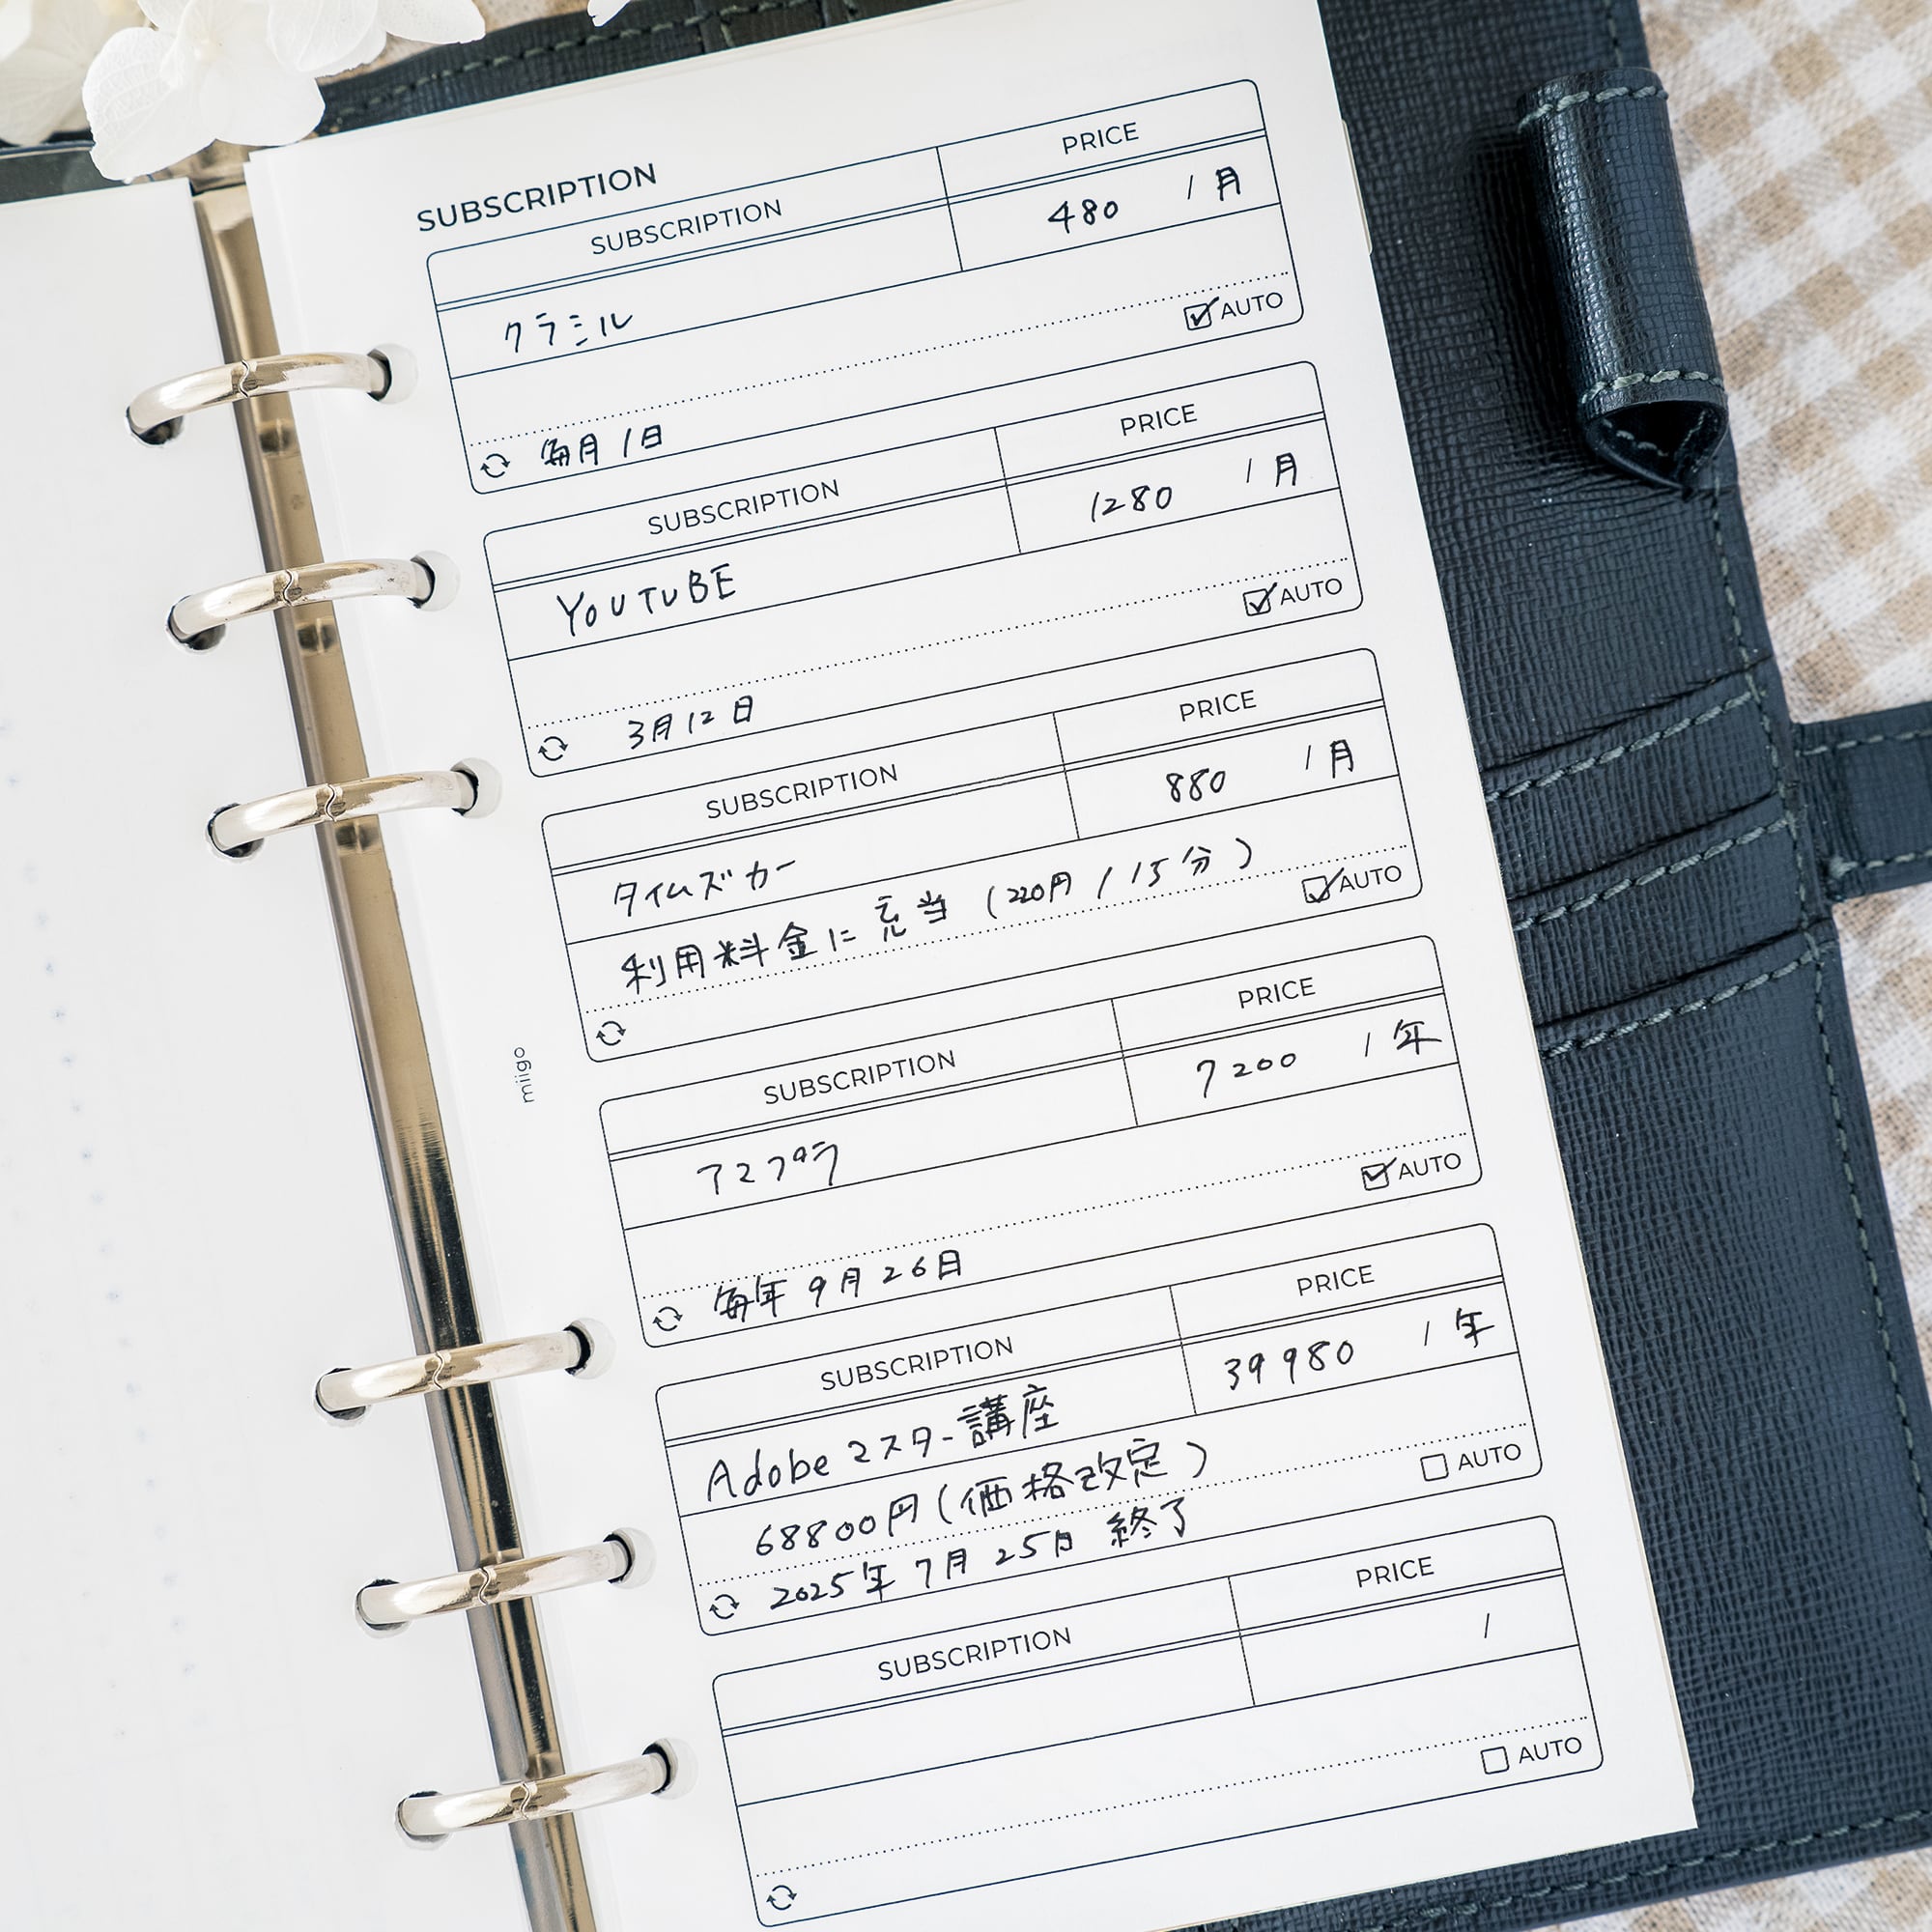 SUBSCRIPTION
SUBSCRIPTION PRICE
クラミル 480 / 月
☑AUTO
毎月1日
SUBSCRIPTION PRICE
YOUTUBE 1280 / 月
☑AUTO
3月12日
SUBSCRIPTION PRICE
タイムズカー 880 / 月
利用料金に充当(220円/15分)
☑AUTO
SUBSCRIPTION PRICE
アマプラ 7200 / 年
☑AUTO
毎年9月26日
SUBSCRIPTION PRICE
Adobeマスター講座 39980 / 年
68800円(価格改定)
☐AUTO
2025年7月25日 終了
SUBSCRIPTION PRICE
/
☐AUTO
miigo